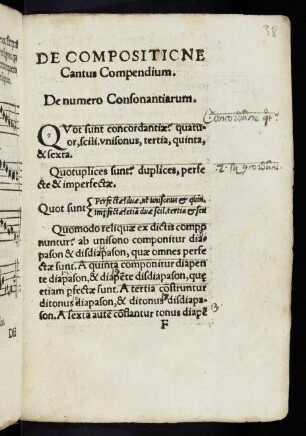 38
DE COMPOSITIONE
Cantus Compendium.
De numero Consonantiarum.
QVot sunt concordantiæ? quatu-
or, scili. vnisonus, tertia, quinta,
& sexta.
Quotuplices sunt? duplices, perfe
ctę & imperfectæ.
Quot sunt { Perfectæ? duæ, ut unisonus & quin.
Imperfectæ? etiã duæ scil. tertia & sex
Quomodo reliquæ ex dictis compo
nuntur? ab unisono componitur dia
pason & disdiapason, quæ omnes perfe
ctæ sunt. A quinta componitur diapen
te diapason, & diapẽte disdiapason, quę
etiam pfectæ sunt. A tertia costruntur
ditonus diapason, & ditonus disdiapa-
son. A sexta autẽ cõstantur tonus diapẽ
F